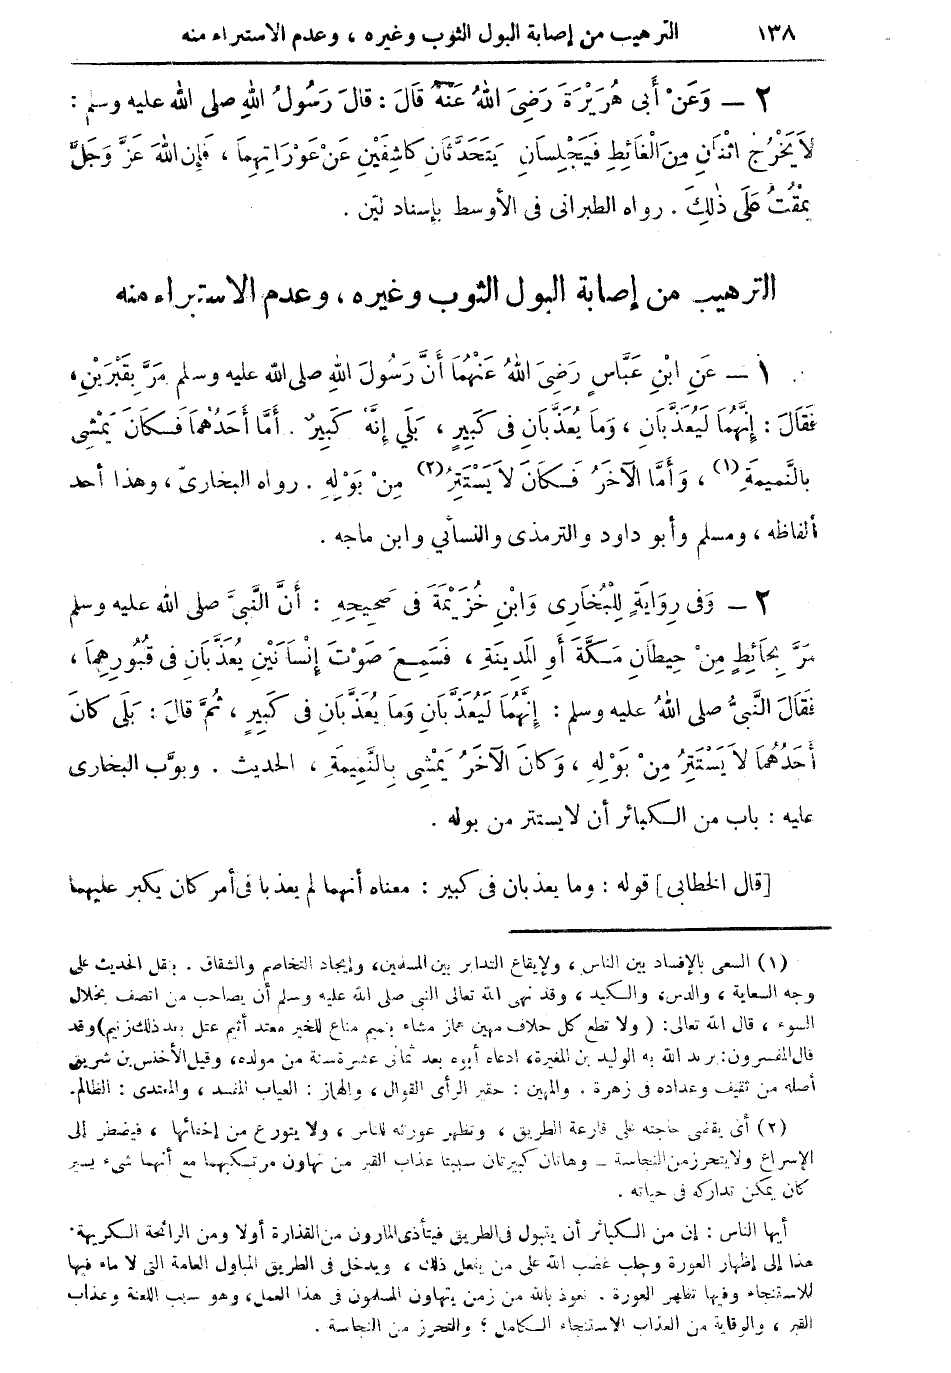 ١٣٨ الترهيب من إصابة البول الثوب وغيره ، وعدم الاستبراء منه
٢ — وَعَنْ أَبِى هُرَيْرَةَ رَضِىَ اللهُ عَنْهُ قَالَ : قالَ رَسُولُ اللهِ صلى الله عليه وسلم :
لاَ يَخْرُجِ اثْنَانِ مِنَ الْغَائِطِ فَيَجْلِسَانِ يَتَحَدَّثَانِ كَاشِفَيْنِ عَنْ عَوْرَاتِهِمَا ، فَإِن اللهَ عَزَّ وَجَلَّ
يَمْقُتُ عَلَى ذٰلِكَ . رواه الطبرانى فى الأوسط بإسناد لين .
الترهيب من إصابة البول الثوب وغيره ، وعدم الاستبراء منه
١ — عَنِ ابْنِ عَبَّاسٍ رَضِىَ اللهُ عَنْهُمَا أَنَّ رَسُولَ اللهِ صلى الله عليه وسلم مَرَّ بِقَبْرَيْنِ ،
فَقَالَ : إِنَّهُمَا لَيُعَذَّبَانِ ، وَمَا يُعَذَّبَانِ فى كَبِيرٍ ، بَلَي إِنَّهُ كَبِيرٌ . أَمَّا أَحَدُهُمَا فَكَانَ يَمْشِى
بِالنَّمِيمَةِ (١) ، وَأَمَّا الآخَرُ فَكَانَ لاَ يَسْتَتِرُ (٢) مِنْ بَوْلِهِ . رواه البخارىّ ، وهذا أحد
ألفاظه ، ومسلم وأبو داود والترمذى والنسائي وابن ماجه .
٢ — وَفى رِوَايَةٍ لِلْبُخَارِى وَابْنِ خُزَيْمَةَ فى صَحِيحِهِ : أَنَّ النَّبِىَّ صلى الله عليه وسلم
مَرَّ بِحَائِطٍ مِنْ حِيطَانِ مَكَّةَ أَوِ المَدِينَةِ ، فَسَمِعَ صَوْتَ إِنْسَانَيْنِ يُعَذَّبَانِ فى قُبُورِهِمَا ،
فَقَالَ النَّبِىُّ صلى اللهُ عليه وسلم : إِنَّهُمَا لَيُعَذَّبَانِ وَمَا يُعَذَّبَانِ فى كَبِيرٍ ، ثُمَّ قالَ : بَلَى كانَ
أَحَدُهُمَا لاَ يَسْتَتِرُ مِنْ بَوْلِهِ ، وَكَانَ الآخَرُ يَمْشِى بِالنَّمِيمَةِ ، الحديث . وبوّب البخارى
عليه : باب من الكبائر أن لا يستتر من بوله .
[قال الخطابى] قوله : وما يعذبان فى كبير : معناه أنهما لم يعذبا فى أمر كان يكبر عليهما
(١) السعى بالإفساد بين الناس ، ولإيقاع التدابر بين المسلمين، وإيجاد التخاصم والشقاق . بنقل الحديث على
وجه السعاية ، والدس، والكيد ، وقد نهى الله تعالى النبى صلى الله عليه وسلم أن يصاحب من اتصف بخلال
السوء ، قال الله تعالى: ( ولا تطع كل حلاف مهين هماز مشاء بنميم مناع للخير معتد أثيم عتل بعد ذلك زنيم) وقد
قال المفسرون: يريد الله به الوليد بن المغيرة، ادعاه أبوه بعد ثمانى عشرة سنة من مولده، وقيل الأخنس بن شريق
أصله من ثقيف وعداده فى زهرة . والمهين : حقير الرأى القوال ، والهماز : العياب المفسد ، والمعتدى : الظالم.
(٢) أى يقضى حاجته على قارعة الطريق ، وتظهر عورته للناس ، ولا يتورع من إخفائها ، فيضطر إلى
الإسراع ولا يتحرز من النجاسة — وهاتان كبيرتان سببتا عذاب القبر من تهاون مرتكبيهما مع أنهما شىء يسير
كان يمكن تداركه فى حياته .
أيها الناس : إن من الكبائر أن يتبول فى الطريق فيتأذى المارون من القذارة أولا ومن الرائحة الكريهة.
هذا إلى إظهار العورة وجلب غضب الله على من يفعل ذلك ، ويدخل فى الطريق المباول العامة التى لا ماء فيها
للاستنجاء وفيها تظهر العورة . نعوذ بالله من زمن يتهاون المسلمون فى هذا العمل، وهو سبب اللعنة وعذاب
القبر ، والوقاية من العذاب الاستنجاء الكامل ؛ والتحرز من النجاسة .